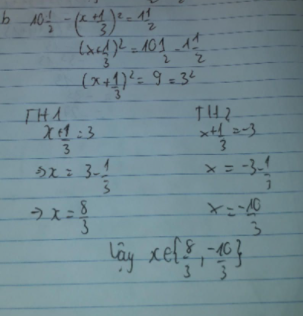 b 10 1/2 - (x + 1/3)² = 1 1/2
(x + 1/3)² = 10 1/2 - 1 1/2
(x + 1/3)² = 9 = 3²
TH1 TH2
x + 1/3 = 3 x + 1/3 = -3
⇒ x = 3 - 1/3 x = -3 - 1/3
→ x = 8/3 x = -10/3
Vậy x ∈ {8/3, -10/3}